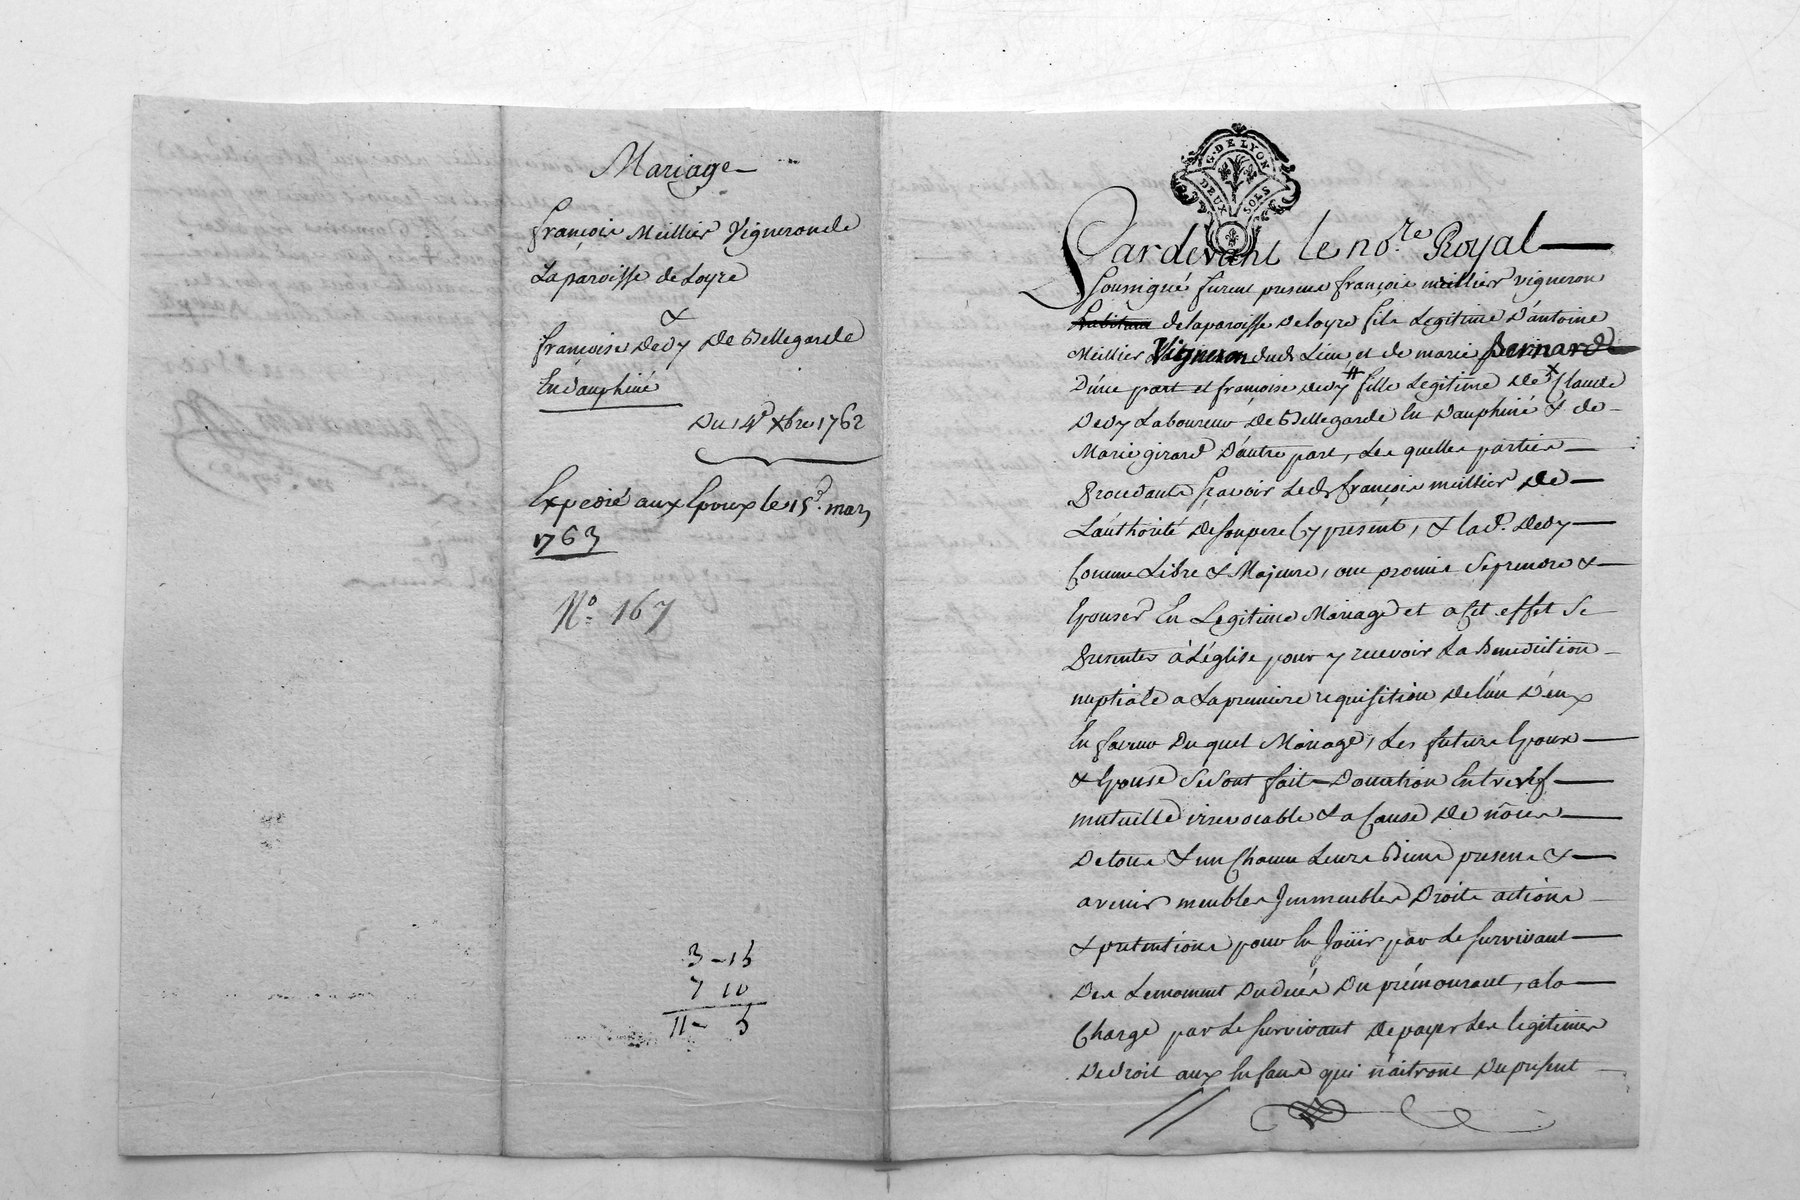 Mariage
françois Meillier Vigneron de
La paroisse de Loyre
&
françoise Devy De Bellegarde
En dauphiné
Du 14e Xbre 1762
Expedié aux Epoux le 15e. mars
1763
No. 167
3 - 15
7 10
11 - 5
G. DE LYON
DEUX SOLS
Pardevant le nore. Royal
soussigné furent presens françois meillier vigneron
habitant de la paroisse de loyre fils Legitime D'antoine
Meillier Vigneron dud. Lieu et de marie Bernard
D'une part et françoise devy # fille Legitime De Claude
Devy Laboureur De Bellegarde En Dauphiné & de
Marie girard D'autre part, Les quelles parties
Procedants sçavoir Led. françois meillier De
L'authorité De son pere Cy present, & lad. Devy
Comme Libre & Majeure, ont promis Se prendre &
Epouser En Legitime Mariage et a Cet effet Se
Presenter à L'église pour y recevoir La Benediction
nuptiale a La premiere requisition De l'un D'eux
En faveur Du quel Mariage, Les futurs Epoux
& Epouse Se Sont fait Donation Entre vif
mutuelle irrevocable & a Cause De nôces
De tous & un Chacun Leurs Biens presens &
avenir meubles Immeubles Droits actions
& pretentions pour En Joüir par Le survivant
Des Le moment Du decés Du prémourant, a la
Charge par Le survivant De payer Les legitimes
De droit aux Enfans qui naitront Du present